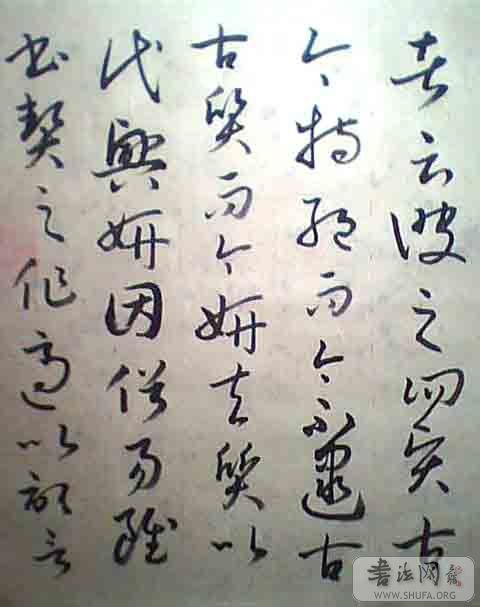 者云彼之四賢古
今特絕而今不逮古
古質而今妍夫質以
代興妍因俗易雖
書契之作適以記言
書法网
WWW.SHUFA.ORG